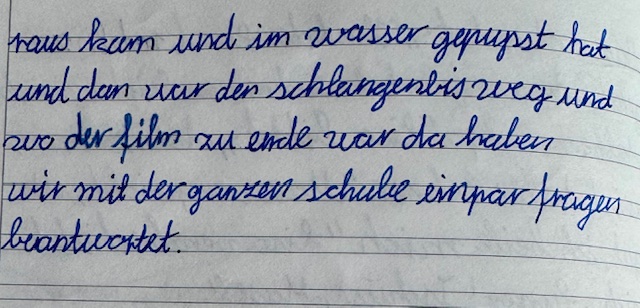 raus kam und im wasser gepupst hat
und dan war den schlangenbis weg und
wo der film zu ende war da haben
wir mit der ganzen schule einpar fragen
beantwortet.